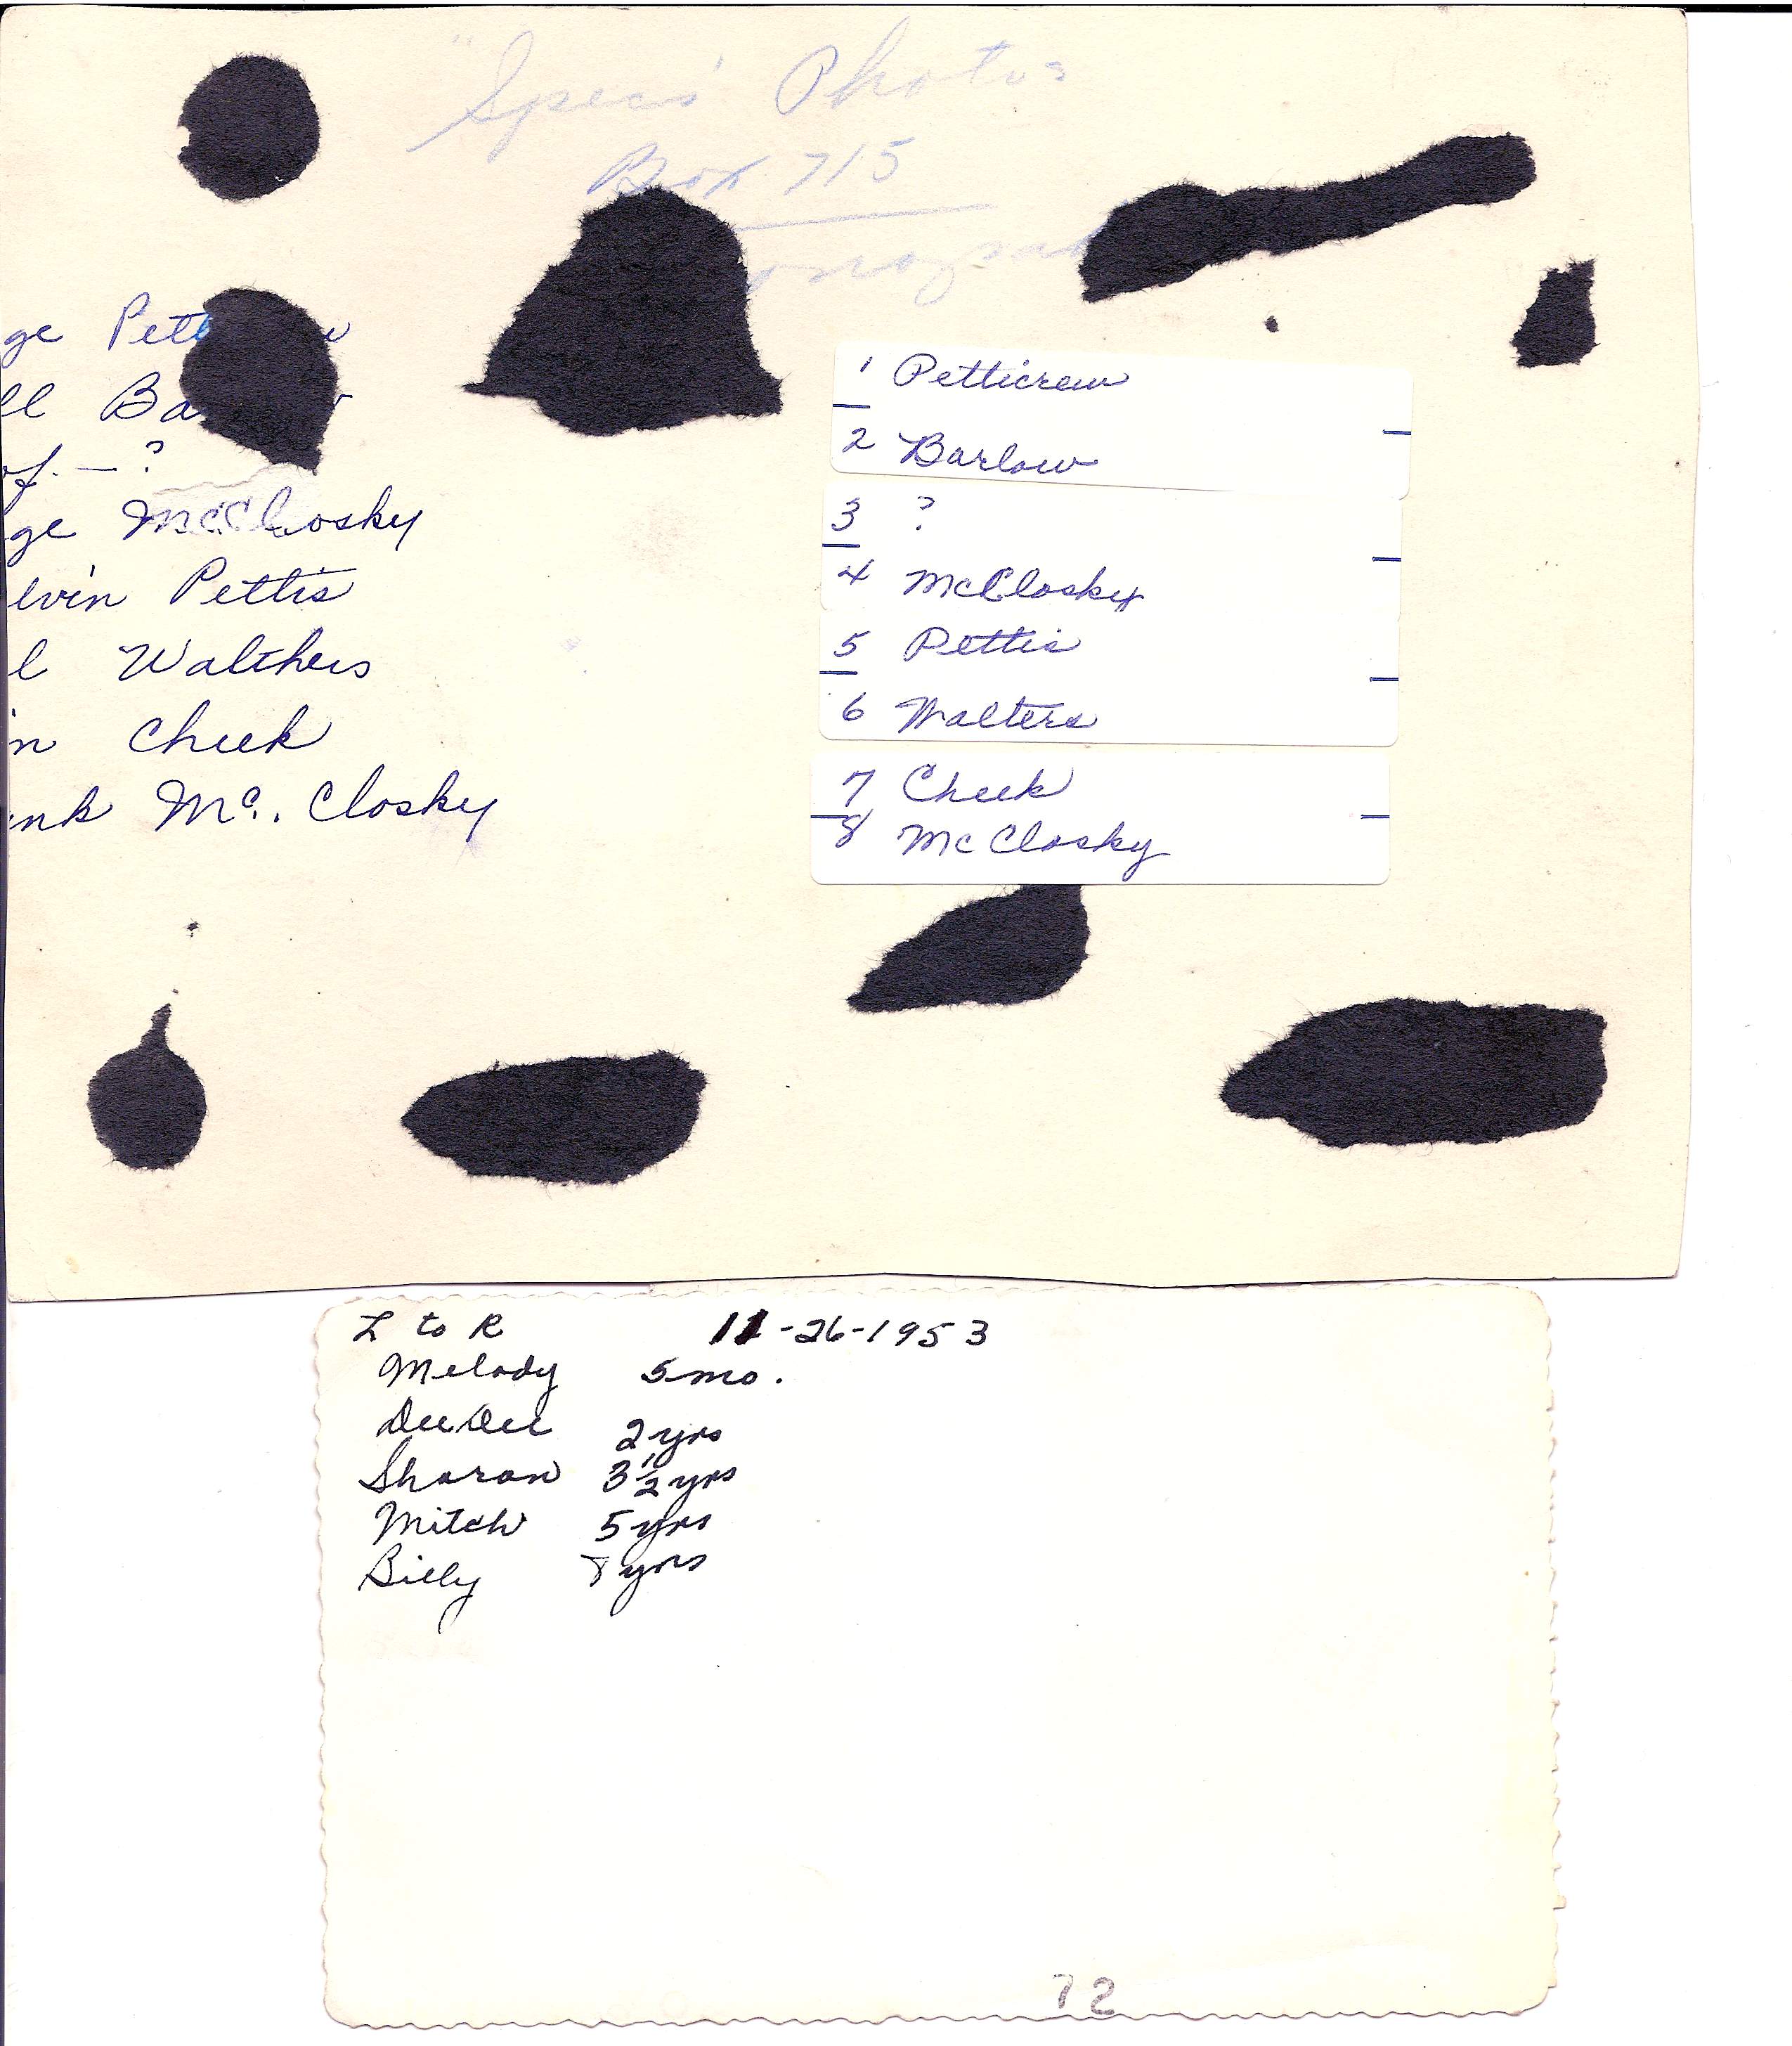 "Specs' Photos
Box 715
ge Pett
ll Ba
of. — ?
ge McClosky
lvin Pettis
l Walthers
n Cheek
nk Mc. Closky
1 Petticrew
2 Barlow
3 ?
4 McClosky
5 Pettis
6 Walters
7 Cheek
8 McClosky
L to R 11-26-1953
Melody 5 mo.
DeeDee 2 yrs
Sharon 3 1/2 yrs
Mitch 5 yrs
Billy 8 yrs
72